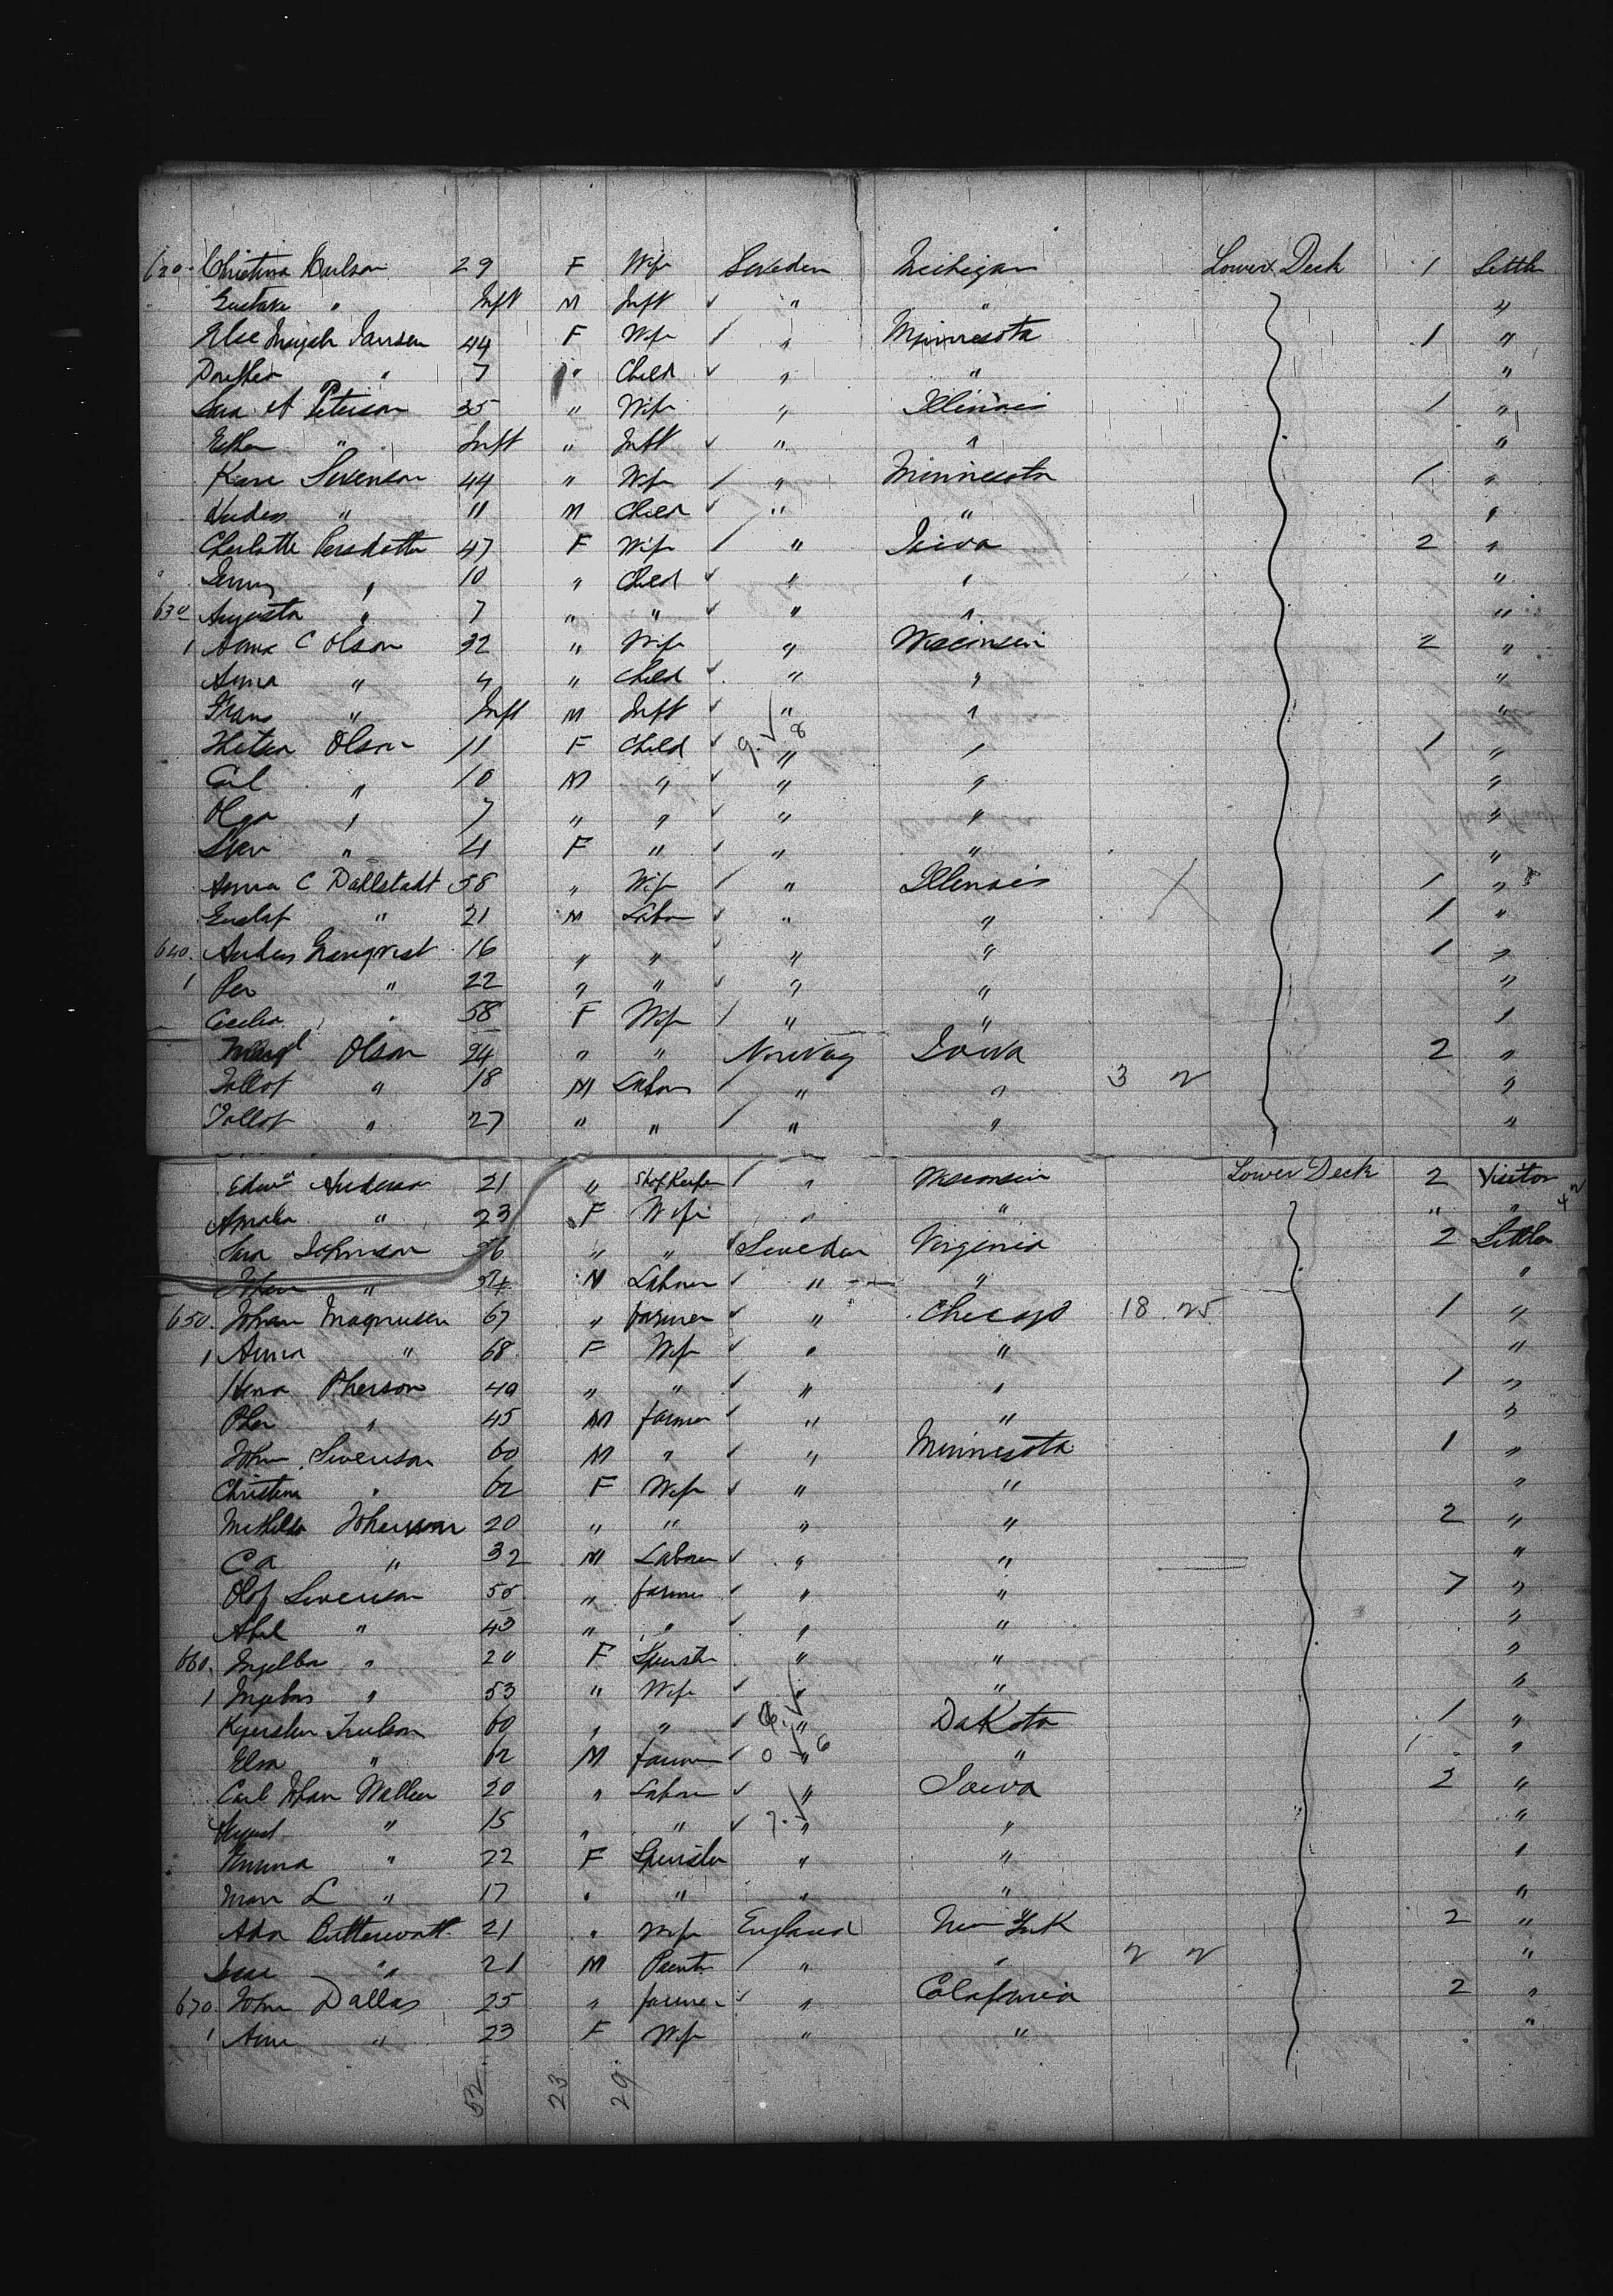 620. Christina Carlson 29 F Wife Sweden Michigan Lower Deck 1 Settler
Gustave " Inft M Inft " " "
Else Jansen 44 F Wife " Minnesota 1 "
Dorthea " 7 " Child " " "
Sara A Peterson 35 " Wife " Illinois 1 "
Esther " Inft " Inft " " "
Kare Swenson 44 " Wife " Minnesota 1 "
" 11 M Child " " "
Charlotte 47 F Wife " Iowa 2 "
Jenny " 10 " Child " " "
630 Augusta " 7 " " " " "
1 Anna C Olson 32 " Wife " Wisconsin 2 "
Anna " 4 " Child " " "
Frans " Inft M Inft " " "
Olson 11 F Child 9. 8 " " 1 "
Carl " 10 M " " " "
Olga " 7 " " " " "
" 4 F " " " "
Anna C Dahlstadt 58 " Wife " Illinois 1 "
Gustaf " 21 M Labor " " 1 "
640. Anders Granqvist 16 " " " " 1 "
1 Per " 22 " " " " "
Cecilia " 58 F Wife " " "
Olson 24 " " Norway Iowa 2 "
Tollof " 18 M Labor " " 3 2 "
Tollof " 27 " " " " "
Edwd Anderson 21 " Shop Keeper " Wisconsin Lower Deck 2 Visitor
Amalia " 23 F Wife " " " "
Sara Johnson 56 " " Sweden Virginia 2 Settler
Johan " 54 M Laborer " " "
650. Johan Magnusen 67 " farmer " Chicago 18 25 1 "
1 Anna " 68 F Wife " " "
Pherson 49 " " " " 1 "
Pher " 45 M farmer " " "
John Swenson 60 M " " Minnesota 1 "
Christina " 62 F Wife " " "
Mathilda Johansson 20 " " " " 2 "
C A " 32 M Laborer " " "
Olof Swenson 55 " farmer " " 7 "
" 43 " " " " "
660. " 20 F Spinster " " "
1 Ingebor " 53 " Wife " " "
60 " " " Dakota 1 "
Elsa " 62 M farmer 0 6 " " "
Carl Johan Wallen 20 " Labor " Iowa 2 "
August " 15 " " 7. " " "
Emma " 22 F Spinster " " "
L " 17 " " " " "
Ada 21 " Wife England New York 2 "
" 21 M " " 2 2 "
670. John Dallas 25 " farmer " Colafornia 2 "
1 " 23 F Wife " " "
52. 23 29.